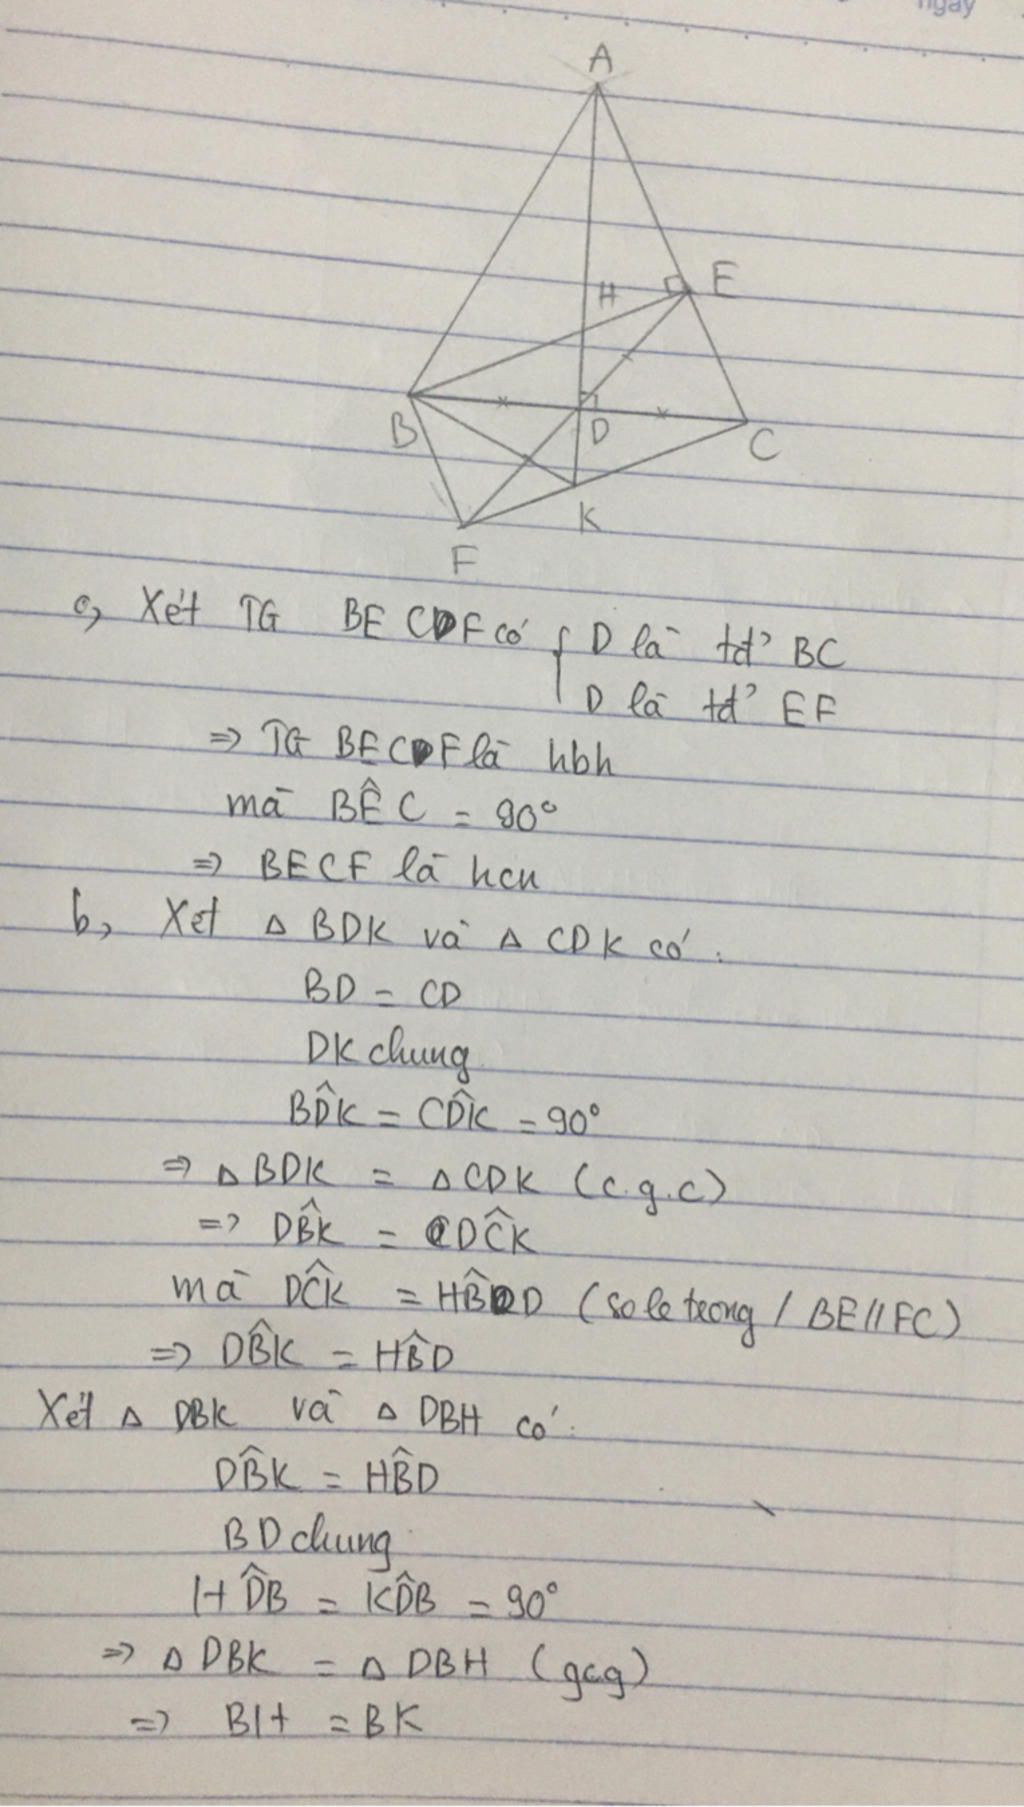 ngày
A
H
E
B
D
C
K
F
a, Xét TG BECDF có { D là tđ' BC
D là tđ' EF
=> TG BECDF là hbh
mà BÊC = 90°
=> BECF là hcn
b, Xét Δ BDK và Δ CDK có :
BD = CD
DK chung
BD̂K = CD̂K = 90°
=> Δ BDK = Δ CDK (c.g.c)
=> DB̂K = DĈK
mà DĈK = HB̂D (so le trong / BE//FC)
=> DB̂K = HB̂D
Xét Δ DBK và Δ DBH có :
DB̂K = HB̂D
BD chung
HD̂B = KD̂B = 90°
=> Δ DBK = Δ DBH (gcg)
=> BH = BK